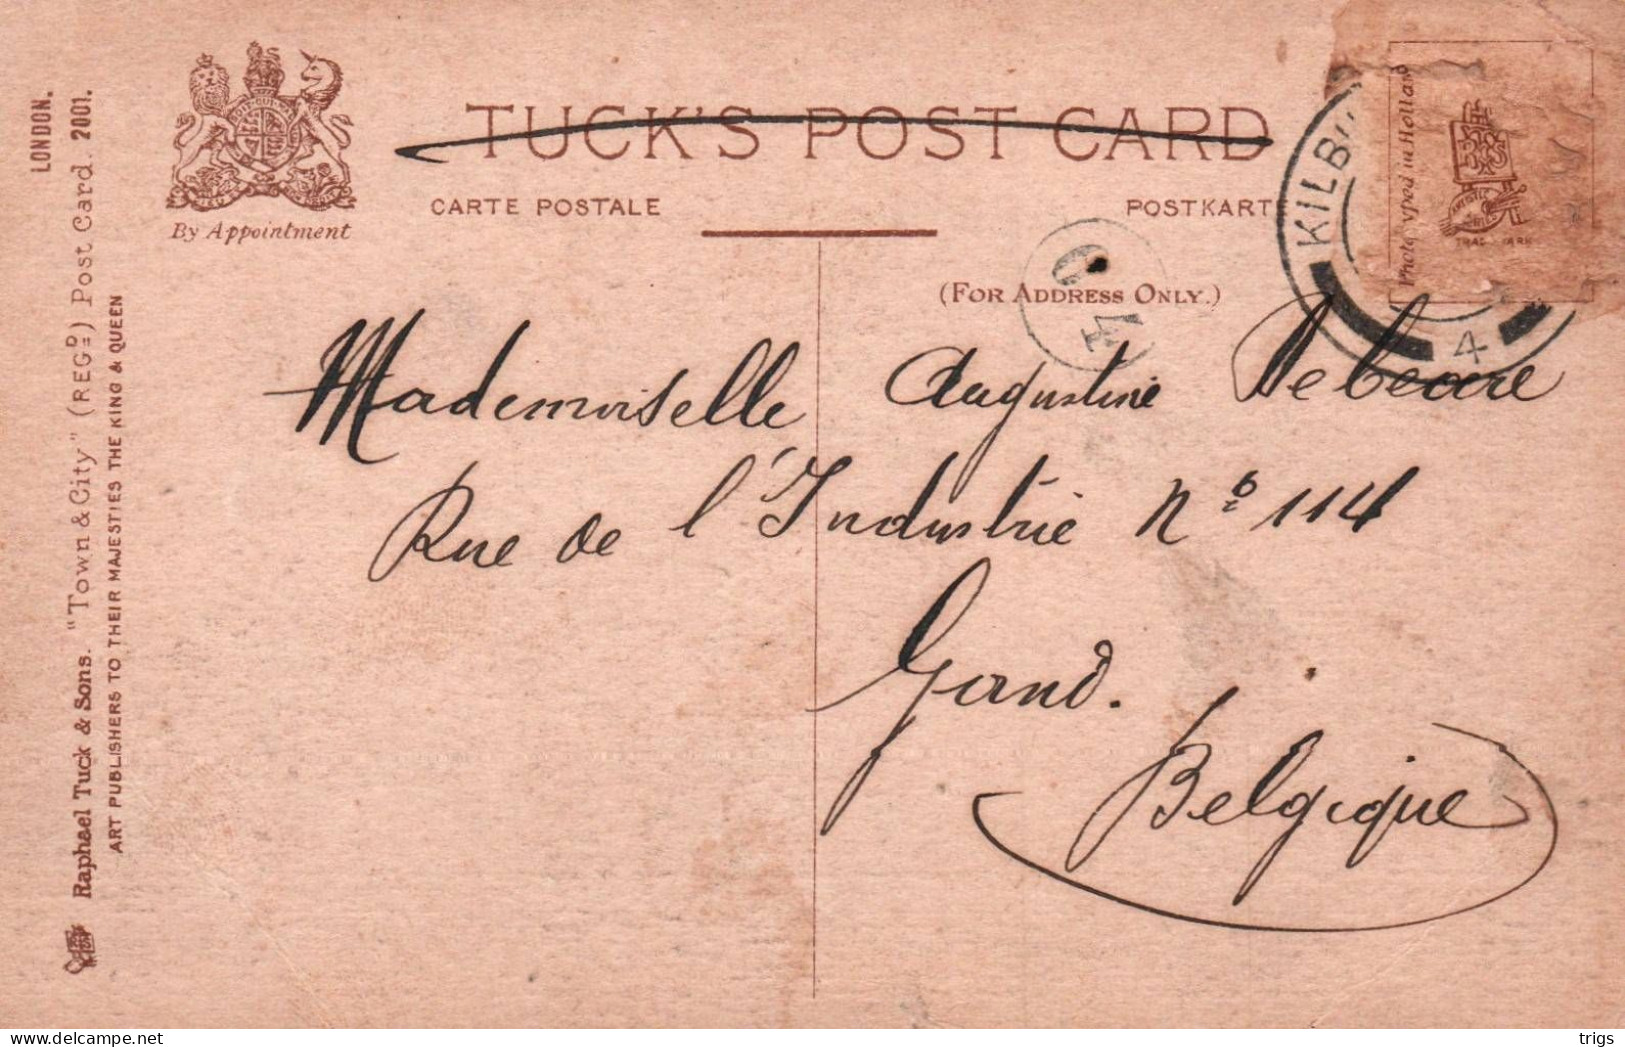 LONDON.
Raphael Tuck & Sons. "Town & City" (REGD.) Post Card. 2001.
ART PUBLISHERS TO THEIR MAJESTIES THE KING & QUEEN
By Appointment
TUCK'S POST CARD
CARTE POSTALE
POSTKART
(FOR ADDRESS ONLY.)
KILB
4
Mademoiselle Augustine
Rue de l'Industrie No 114
Gand.
Belgique
trigs